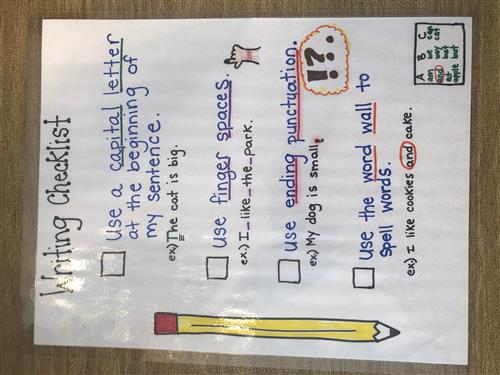 Writing Checklist
Use a capital letter
at the beginning of
my sentence.
ex) The cat is big.
Use finger spaces.
ex.) I_like_the_park.
Use ending punctuation.
!?.
ex.) My dog is small.
Use the word wall to
spell words.
ex.) I like cookies and cake.
A B C
can be can
and way cat
at bat
apple but